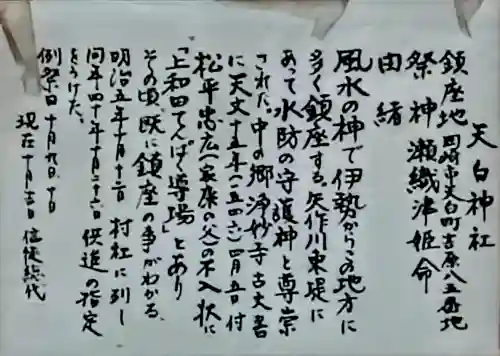 天白神社
鎮座地 岡崎市天白町吉原八五番地
祭神 瀬織津姫命
由緒
風水の神で伊勢からこの地方に
多く鎮座する。矢作川東堤に
あって水防の守護神と尊崇
された。中の郷浄妙寺古文書
に天文十五年(一五四六)四月五日付
松平忠広(家康の父)の不入状に
「上和田てんば(導場」とあり
その頃、既に鎮座の事がわかる。
明治五年十月十二日 村社に列し
同年四十年十月二十六日 供進の指定
をうけた。
例祭日 十月九日、十日
現在 十月 信徒総代